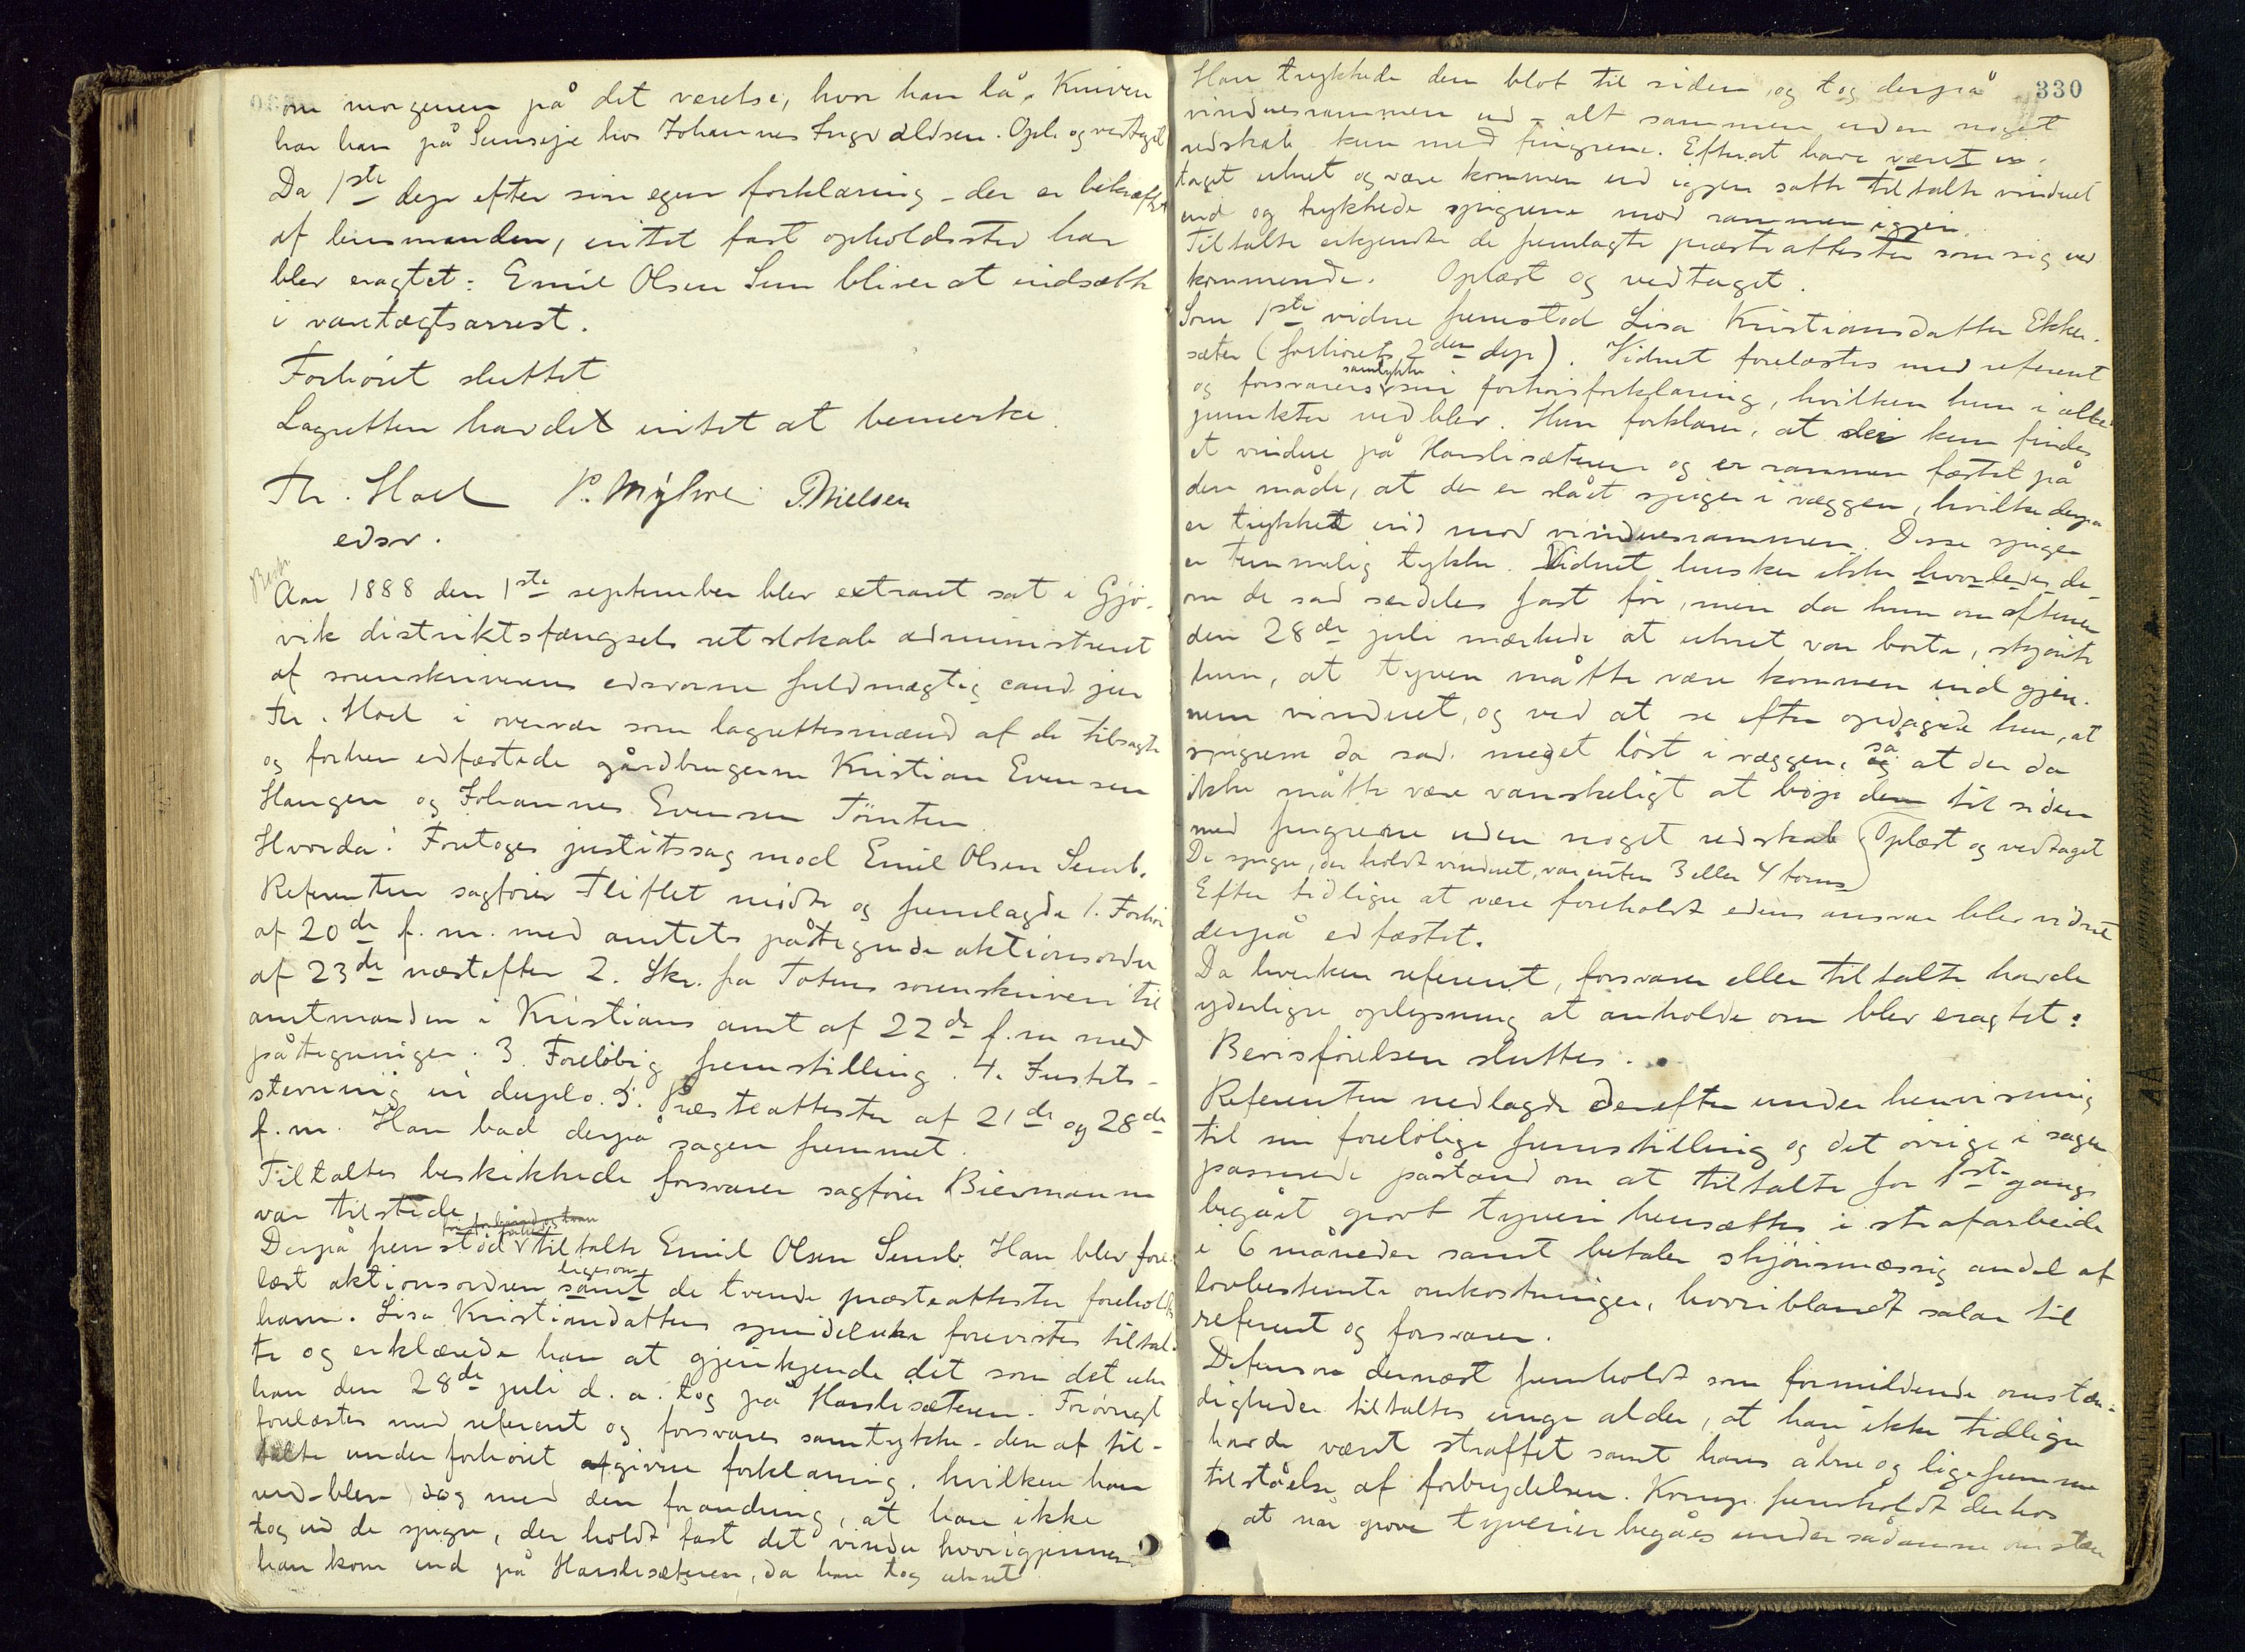 om morgenen på det værelse, hvor han lå. Kniven
har han på Sumseje hos Johannes Ingvaldsen. Opl. og vedtaget
Da 1ste dep efter sin egen forklaring – der er bekræftet
af lensmanden, intet fast opholdssted har
blev eragtet: Emil Olsen Sem bliver at indsætte
i varetægtsarrest.
Forhöret sluttet
Lagretten havde intet at bemerke.
Th. Hoel P. Myhre P. Nielsen
edsv.
Aar 1888 den 1ste september blev extraret sat i Gjö-
vik distriktsfængsels retslokale administreret
af sorenskriverens edsvorne fuldmægtig cand jur
Th. Hoel i overvær som lagrettesmænd af de tilsagte
og forhen edfæstede gårdbrugerne Kristian Evensen
Haugen og Johannes Evensen Tömten
Hvorda: Foretoges justitssag mod Emil Olsen Semb.
Referenten sagförer Fliflet mödte og fremlagde 1. Forhör
af 20de f. m. med amtets påtegnede aktionsordre
af 23de næstefter 2. Skr. fra Totens sorenskriveri til
amtmanden i Kristians amt af 22de f. m med
påtegninger. 3. Forelöbig fremstilling. 4. Justits-
stevning in duplo. 5. Præsteattester af 21de og 28de
f. m. Han bad derpå sagen fremmet.
Tiltaltes beskikkede forsvarer sagförer Biermann
var tilstede
Derpå fremstod tiltalte Emil Olsen Semb. Han blev fore-
læst aktionsordren samt ligesom de tvende præsteattester foreholdtes
ham. Lisa Kristiandatters spindeluhr forevistes tiltal-
te og erklærede han at gjenkjende det som det uhr
han den 28de juli d. a. tog på Harslisæteren. Forövrigt
forelæstes med referent og forsvarers samtykke – den af til-
talte under forhöret afgivne forklaring, hvilken han
ved-blev dog med den forandring, at han ikke
tog ud de spigre, der holdt fast det vindu hvorigjennem
han kom ind på Harslisæteren, da han tog uhret
330
Han trykkede dem blot til siden og tog derpå
vinduesrammen ud – alt sammen uden noget
redskab kun med fingrene. Efterat have været
taget uhret og være kommen ud igjen satte tiltalte vinduet
ind og trykkede spigrene mod rammen igjen.
Tiltalte erkjendte de fremlagte præsteattester som sig ved-
kommende. Oplæst og vedtaget.
Som 1ste vidne fremstod Lisa Kristiansdatter Ekke-
sæter (forhörets 2den dep). Vidnet forelæstes med referent
og forsvarers samtykke sin forhörsforklaring, hvilken hun i alle
punkter vedblev. Hun forklarer, at der kun findes
et vindue på Harslisæteren og er rammen fæstet på
den måde, at der er slået spiger i væggen, hvilke derpå
er trykket ind mod vinduesrammen. Disse spiger
er temmelig tykke. Vidnet husker ikke hvorledes de
om de sad særdeles fast för, men da hun om aftenen
den 28de juli mærkede at uhret var borte, skjönte
hun, at tyven måtte være kommen ind gjen-
nem vinduet, og ved at se efter opdagede hun, at
spigrene da sad meget löst i væggen, så at der da
ikke måtte være vanskeligt at böje dem til siden
med fingrene uden noget redskab (Oplæst og vedtaget
De spigre, der holdt vinduet, var enten 3 eller 4 toms)
Efter tidligere at være foreholdt edens ansvar blev vidnet
derpå edfæstet.
Da hverken referent, forsvarer eller tiltalte havde
yderligre oplysning at anholde om blev eragtet:
Bevisförelsen sluttes.
Referenten nedlagde derefter under henvisning
til sin forelöbige fremstilling og det övrige i sagen
passerede påstand om at tiltalte for 1ste gangs
begået grovt tyveri hensættes i strafarbeide
i 6 måneder samt betaler skjönsmæssig andel af
lovbestemte omkostninger, hvoriblandt salær til
referent og forsvarer.
Defensor dernæst fremholdt som formildende omstæn-
digheder tiltaltes unge alder, at han ikke tidligere
havde været straffet samt hans åbne og ligefremme
tilståelse af forbrydelsen. Komp. fremholdt derhos
at når grove tyverier begåes under sådanne omstæn